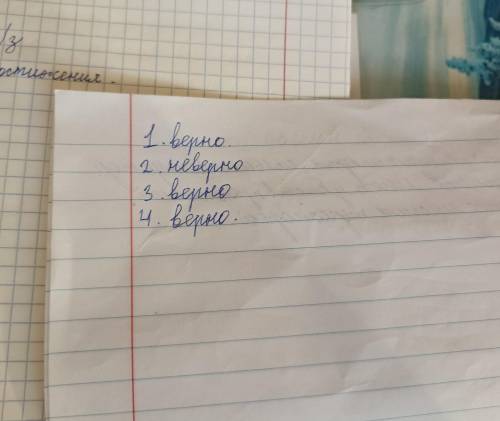 /з
остижения.
1. верно.
2. неверно
3. верно
4. верно.